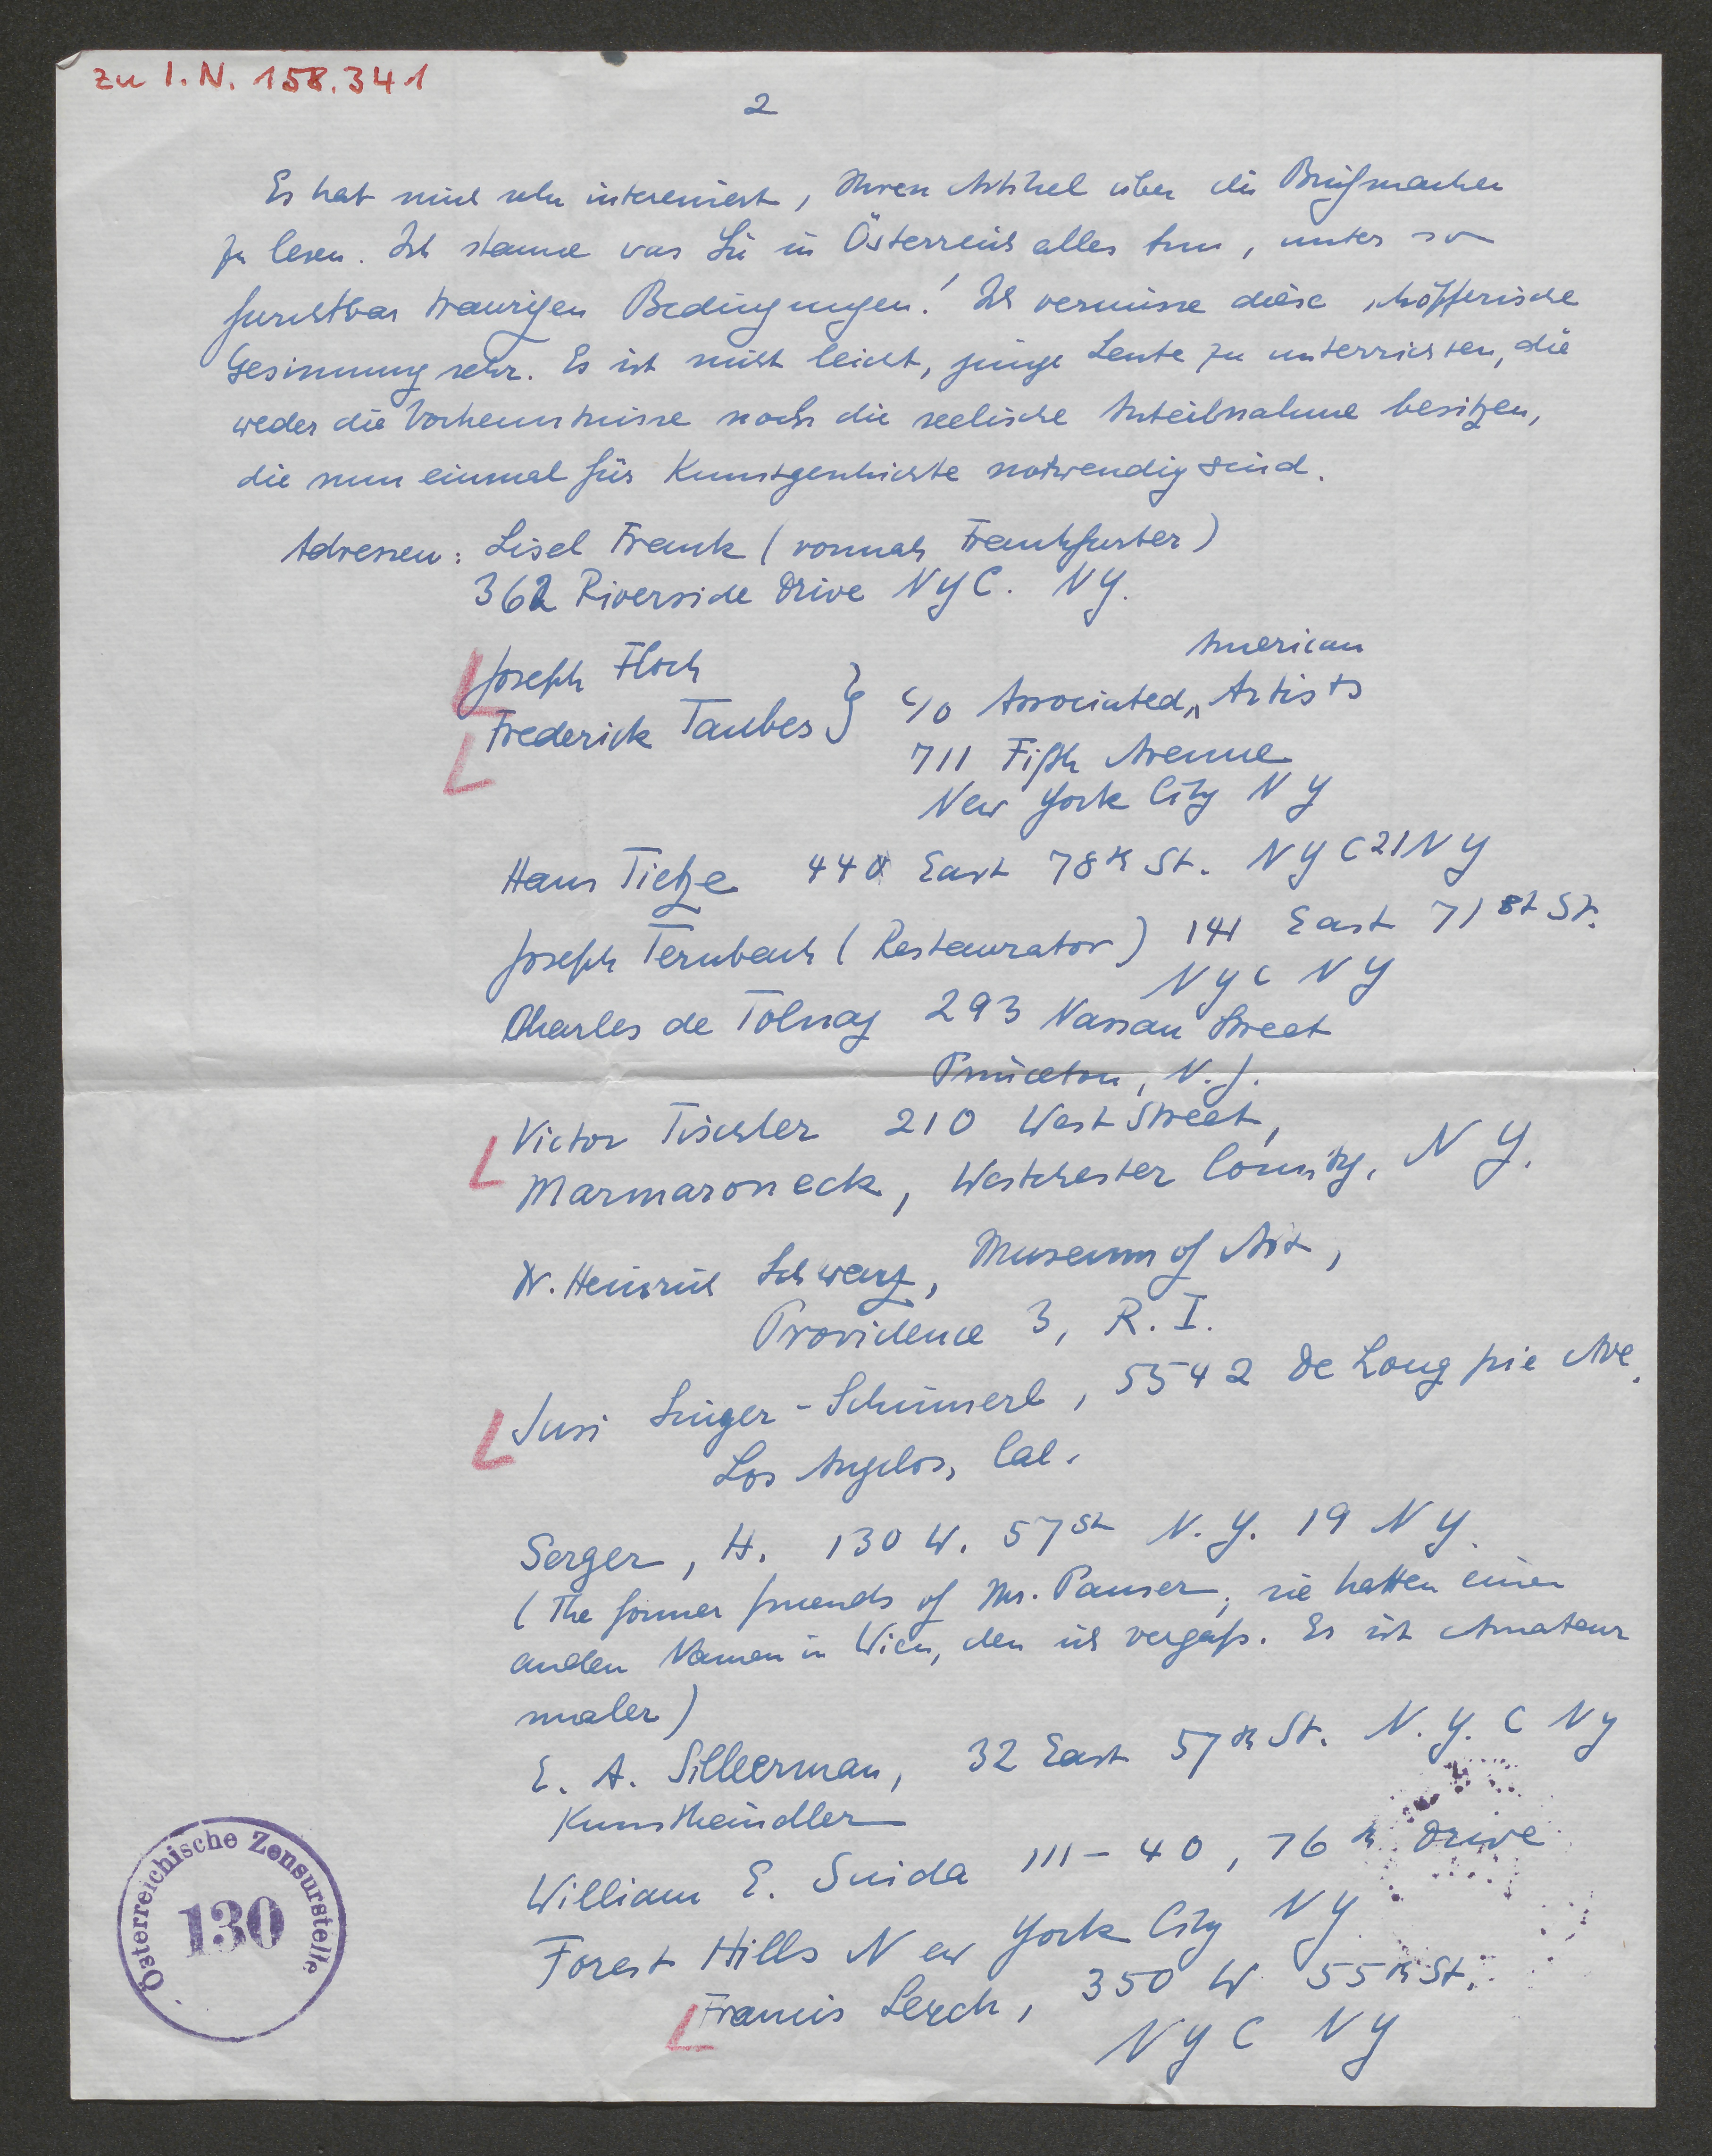 zu I. N. 158.341
2
Es hat mich sehr interessiert, Ihren Artikel über die Briefmarken
zu lesen. Ich staune was Sie in Österreich alles tun, unter so
furchtbar traurigen Bedingungen! Ich vermisse diese schöpferische
Gesinnung sehr. Es ist nicht leicht, junge Leute zu unterrichten, die
weder die Vorkenntnisse noch die seelische Anteilnahme besitzen,
die nun einmal für Kunstgeschichte notwendig sind.
Adressen: Lisel Frank (vormals Frankfurter)
362 Riverside Drive NYC. NY.
Joseph Floch
Frederick Taubes } c/o Associated American Artists
711 Fifth Avenue
New York City NY
Hans Tietze 440 East 78th St. NYC 21 NY
Joseph Ternbach (Restaurator) 141 East 71st St.
NYC NY
Charles de Tolnay 293 Nassau Street
Princeton, N.J.
Victor Tischler 210 West Street,
Marmaroneck, Westchester County, NY.
Dr. Heinrich Schwarz, Museum of Art,
Providence 3, R.I.
Susi Singer-Schinnerl, 5542 De Longpie Ave.
Los Angelos, Cal.
Serger, H. 130 W. 57St N.Y. 19 NY.
(The former friends of Mr. Pauser, sie hatten einen
andern Namen in Wien, den ich vergaß. Er ist Amateur
maler)
E. A. Silberman, 32 East 57th St. N.Y.C NY
Kunsthändler
William E. Suida 111-40, 76th Drive
Forest Hills New York City NY
Francis Lerch, 350 W 55th St.
NYC NY
Österreichische Zensurstelle
130